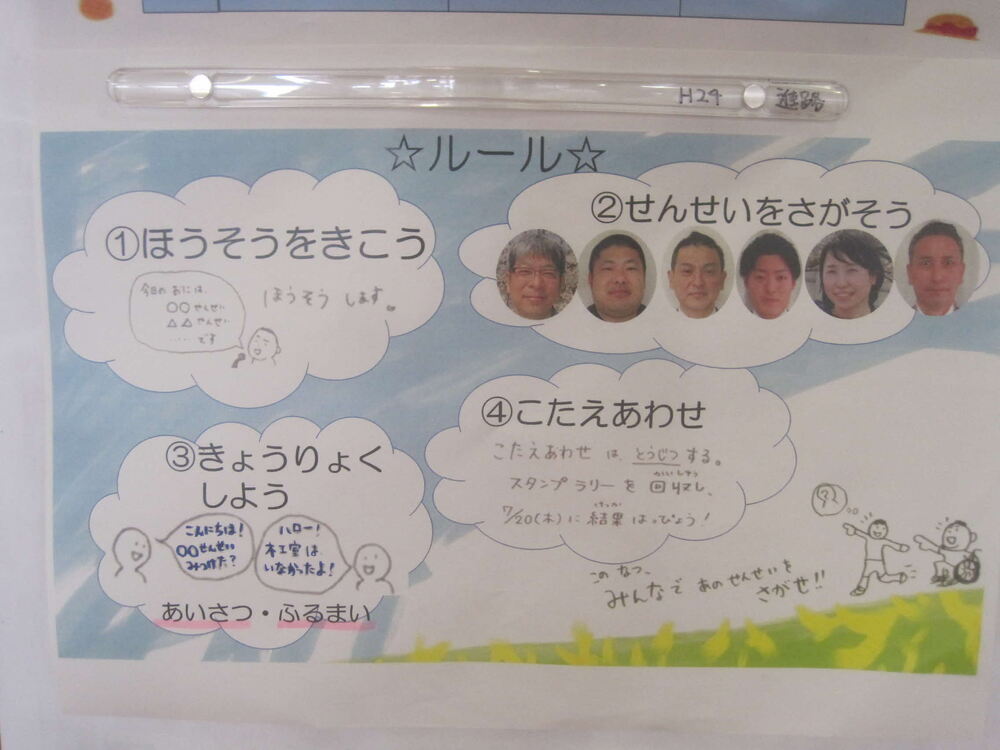 H24 進路
☆ルール☆
①ほうそうをきこう
今日の おには、
○○せんせい
△△せんせい
……です
ほうそう します。
②せんせいをさがそう
③きょうりょく
しよう
こんにちは!
○○せんせい
みつけた?
ハロー!
木工室は
いなかったよ!
あいさつ・ふるまい
④こたえあわせ
こたえあわせ は、とうじつ する。
スタンプラリー を 回収し、
かいしゅう
7/20(木)に 結果 はっぴょう!
けっか
この なつ、
みんなで あの せんせいを
さがせ!!